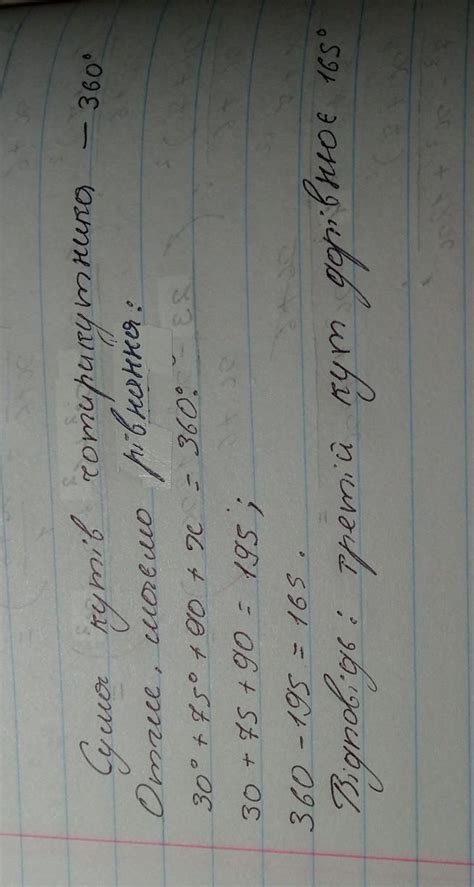 Сума кутів чотирикутника – 360°
Отже, маємо рівняння:
30° + 75° + 90 + x = 360°.
30 + 75 + 90 = 195;
360 – 195 = 165.
Відповідь: третій кут дорівнює 165°